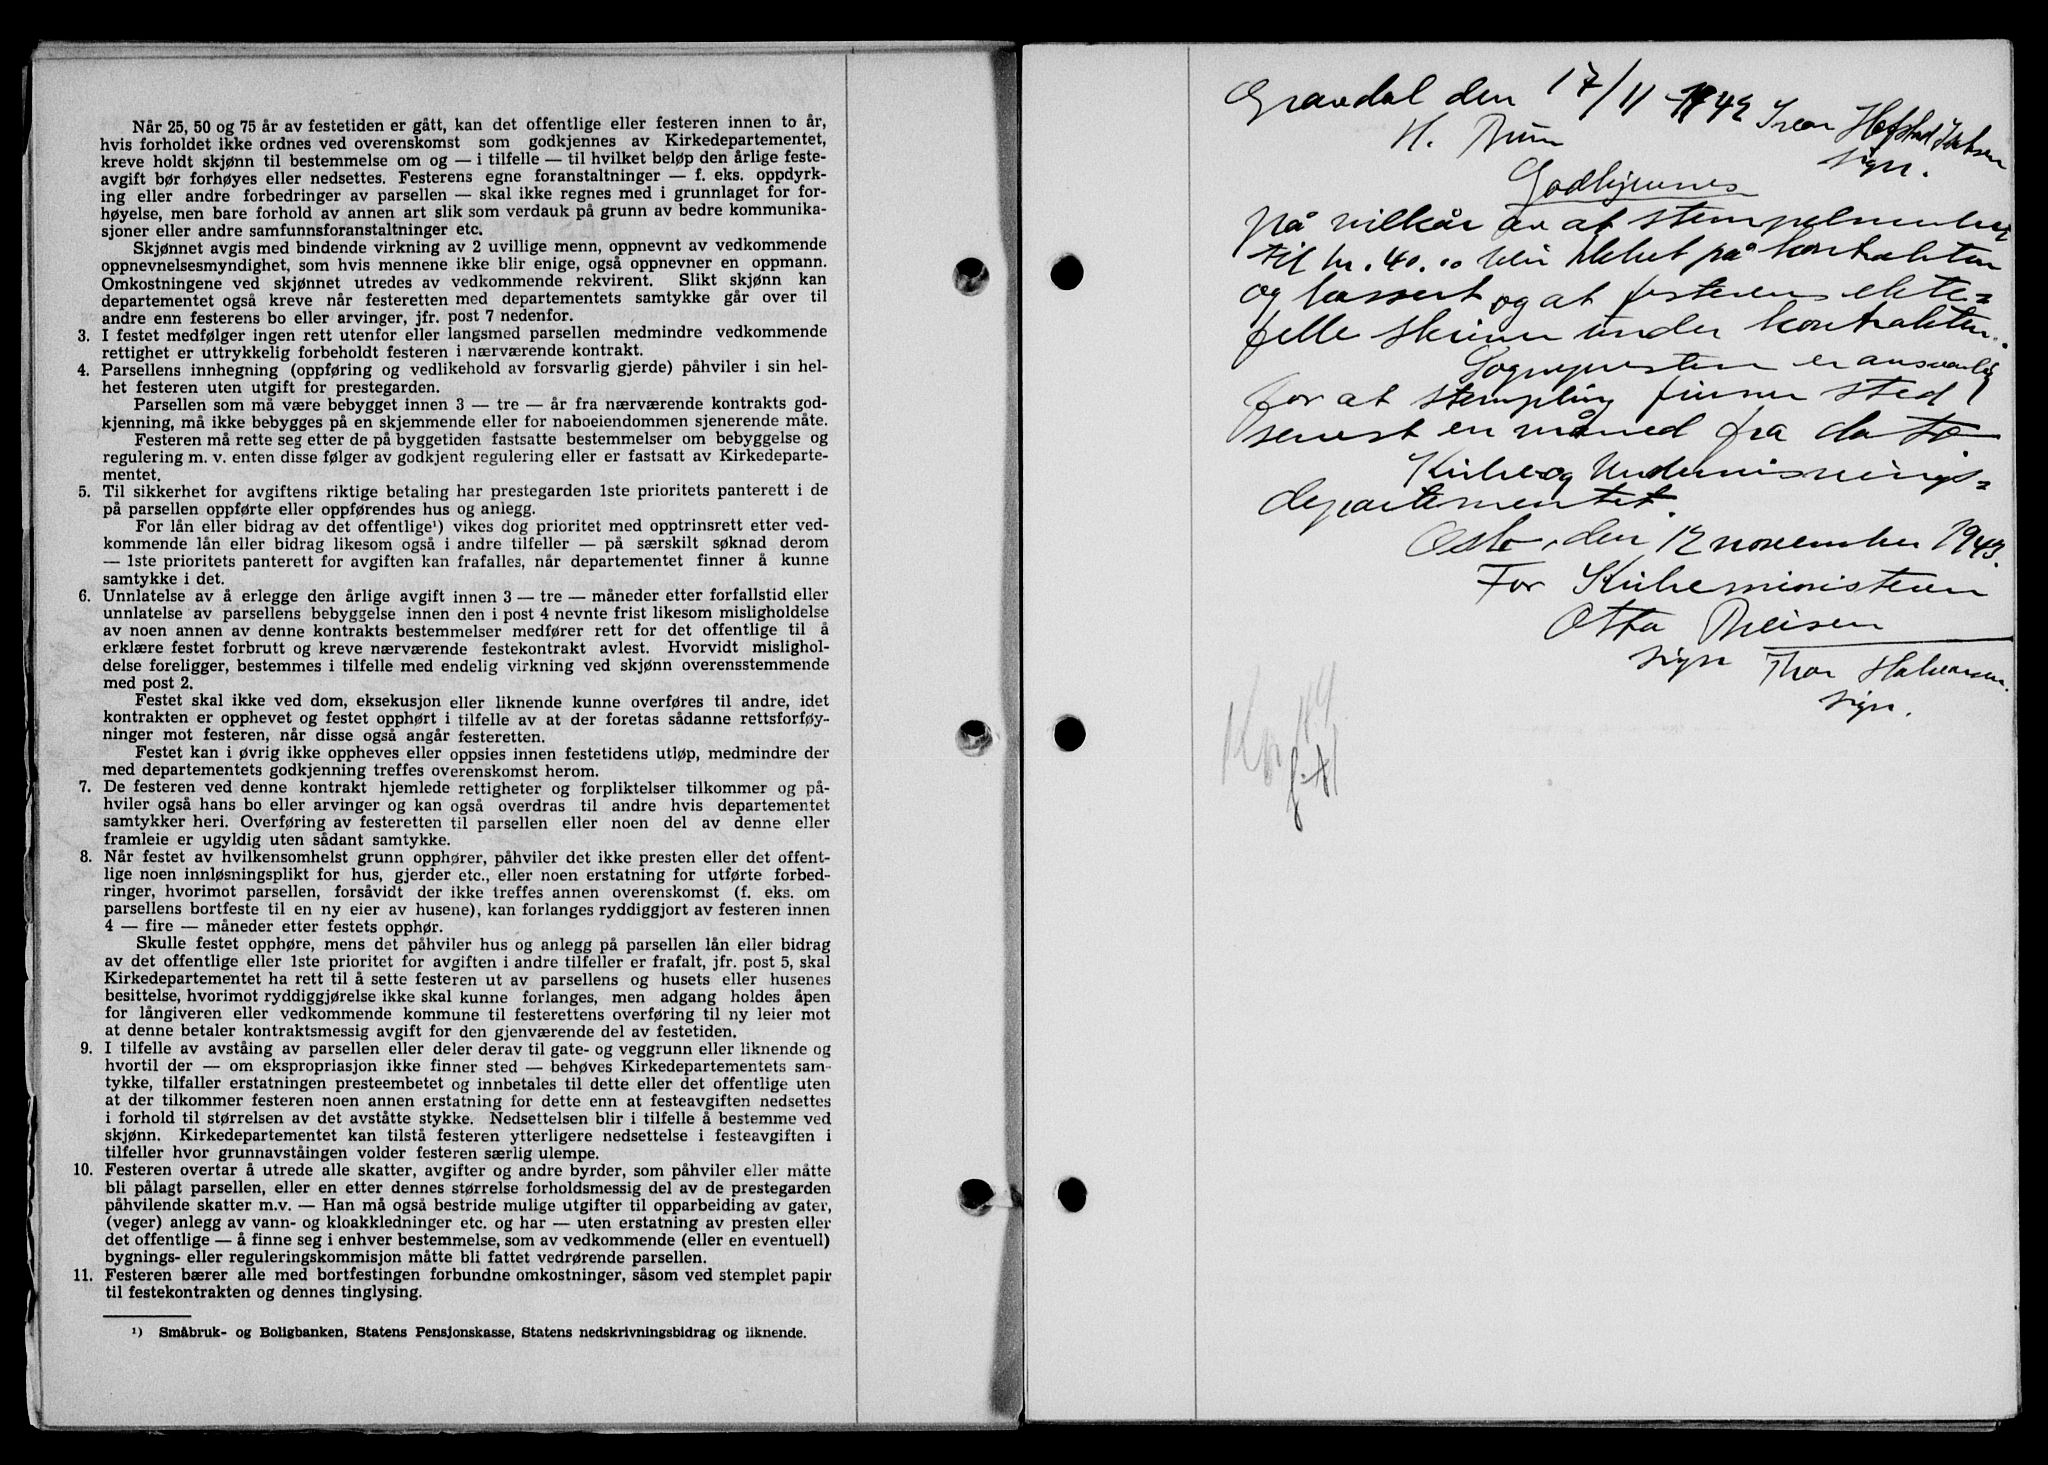 Når 25, 50 og 75 år av festetiden er gått, kan det offentlige eller festeren innen to år,
hvis forholdet ikke ordnes ved overenskomst som godkjennes av Kirkedepartementet,
kreve holdt skjønn til bestemmelse om og — i tilfelle — til hvilket beløp den årlige feste-
avgift bør forhøyes eller nedsettes. Festerens egne foranstaltninger — f. eks. oppdyrk-
ing eller andre forbedringer av parsellen — skal ikke regnes med i grunnlaget for for-
høyelse, men bare forhold av annen art slik som verdauk på grunn av bedre kommunika-
sjoner eller andre samfunnsforanstaltninger etc.
Skjønnet avgis med bindende virkning av 2 uvillige menn, oppnevnt av vedkommende
oppnevnelsesmyndighet, som hvis mennene ikke blir enige, også oppnevner en oppmann.
Omkostningene ved skjønnet utredes av vedkommende rekvirent. Slikt skjønn kan
departementet også kreve når festeretten med departementets samtykke går over til
andre enn festerens bo eller arvinger, jfr. post 7 nedenfor.
3. I festet medfølger ingen rett utenfor eller langsmed parsellen medmindre vedkommende
rettighet er uttrykkelig forbeholdt festeren i nærværende kontrakt.
4. Parsellens innhegning (oppføring og vedlikehold av forsvarlig gjerde) påhviler i sin hel-
het festeren uten utgift for prestegarden.
Parsellen som må være bebygget innen 3 — tre — år fra nærværende kontrakts god-
kjenning, må ikke bebygges på en skjemmende eller for naboeiendommen sjenerende måte.
Festeren må rette seg etter de på byggetiden fastsatte bestemmelser om bebyggelse og
regulering m. v. enten disse følger av godkjent regulering eller er fastsatt av Kirkedeparte-
mentet.
5. Til sikkerhet for avgiftens riktige betaling har prestegarden 1ste prioritets panterett i de
på parsellen oppførte eller oppførendes hus og anlegg.
For lån eller bidrag av det offentlige¹) vikes dog prioritet med opptrinsrett etter ved-
kommende lån eller bidrag likesom også i andre tilfeller — på særskilt søknad derom
— 1ste prioritets panterett for avgiften kan frafalles, når departementet finner å kunne
samtykke i det.
6. Unnlatelse av å erlegge den årlige avgift innen 3 — tre — måneder etter forfallstid eller
unnlatelse av parsellens bebyggelse innen den i post 4 nevnte frist likesom misligholdelse
av noen annen av denne kontrakts bestemmelser medfører rett for det offentlige til å
erklære festet forbrutt og kreve nærværende festekontrakt avlest. Hvorvidt mislighol-
delse foreligger, bestemmes i tilfelle med endelig virkning ved skjønn overensstemmende
med post 2.
Festet skal ikke ved dom, eksekusjon eller liknende kunne overføres til andre, idet
kontrakten er opphevet og festet opphørt i tilfelle av at der foretas sådanne rettsforføy-
ninger mot festeren, når disse også angår festeretten.
Festet kan i øvrig ikke oppheves eller oppsies innen festetidens utløp, medmindre der
med departementets godkjenning treffes overenskomst herom.
7. De festeren ved denne kontrakt hjemlede rettigheter og forpliktelser tilkommer og på-
hviler også hans bo eller arvinger og kan også overdras til andre hvis departementet
samtykker heri. Overføring av festeretten til parsellen eller noen del av denne eller
framleie er ugyldig uten sådant samtykke.
8. Når festet av hvilkensomhelst grunn opphører, påhviler det ikke presten eller det offent-
lige noen innløsningsplikt for hus, gjerder etc., eller noen erstatning for utførte forbed-
ringer, hvorimot parsellen, forsåvidt der ikke treffes annen overenskomst (f. eks. om
parsellens bortfeste til en ny eier av husene), kan forlanges ryddiggjort av festeren innen
4 — fire — måneder etter festets opphør.
Skulle festet opphøre, mens det påhviler hus og anlegg på parsellen lån eller bidrag
av det offentlige eller 1ste prioritet for avgiften i andre tilfeller er frafalt, jfr. post 5, skal
Kirkedepartementet ha rett til å sette festeren ut av parsellens og husets eller husenes
besittelse, hvorimot ryddiggjørelse ikke skal kunne forlanges, men adgang holdes åpen
for långiveren eller vedkommende kommune til festerettens overføring til ny leier mot
at denne betaler kontraktsmessig avgift for den gjenværende del av festetiden.
9. I tilfelle av avståing av parsellen eller deler derav til gate- og veggrunn eller liknende og
hvortil der — om ekspropriasjon ikke finner sted — behøves Kirkedepartementets sam-
tykke, tilfaller erstatningen presteembetet og innbetales til dette eller det offentlige uten
at der tilkommer festeren noen annen erstatning for dette enn at festeavgiften nedsettes
i forhold til størrelsen av det avståtte stykke. Nedsettelsen blir i tilfelle å bestemme ved
skjønn. Kirkedepartementet kan tilstå festeren ytterligere nedsettelse i festeavgiften i
tilfeller hvor grunnavståingen volder festeren særlig ulempe.
10. Festeren overtar å utrede alle skatter, avgifter og andre byrder, som påhviler eller måtte
bli pålagt parsellen, eller en etter dennes størrelse forholdsmessig del av de prestegarden
påhvilende skatter m.v. — Han må også bestride mulige utgifter til opparbeiding av gater,
(veger) anlegg av vann- og kloakkledninger etc. og har — uten erstatning av presten eller
det offentlige — å finne seg i enhver bestemmelse, som av vedkommende (eller en eventuell)
bygnings- eller reguleringskommisjon måtte bli fattet vedrørende parsellen.
11. Festeren bærer alle med bortfestingen forbundne omkostninger, såsom ved stemplet papir
til festekontrakten og dennes tinglysing.
¹) Småbruk- og Boligbanken, Statens Pensjonskasse, Statens nedskrivningsbidrag og liknende.
Gravdal den 17/11
Ivar Hofstad Jakobsen
H. sign.
Godkjennes
på vilkår av at stempelmerker
til kr. 40.00 blir klebet på kontrakten
og kassert og at festerens ekte-
felle skriver under kontrakten.
Sognepresten er ansvarlig
for at stempling finner sted
senest en måned fra dato
Kirke og Undervisnings-
departementet.
Oslo, den 12 november 1943.
For Kirkeministeren
Otto
sign Thor Halvorsen.
sign.
Kr